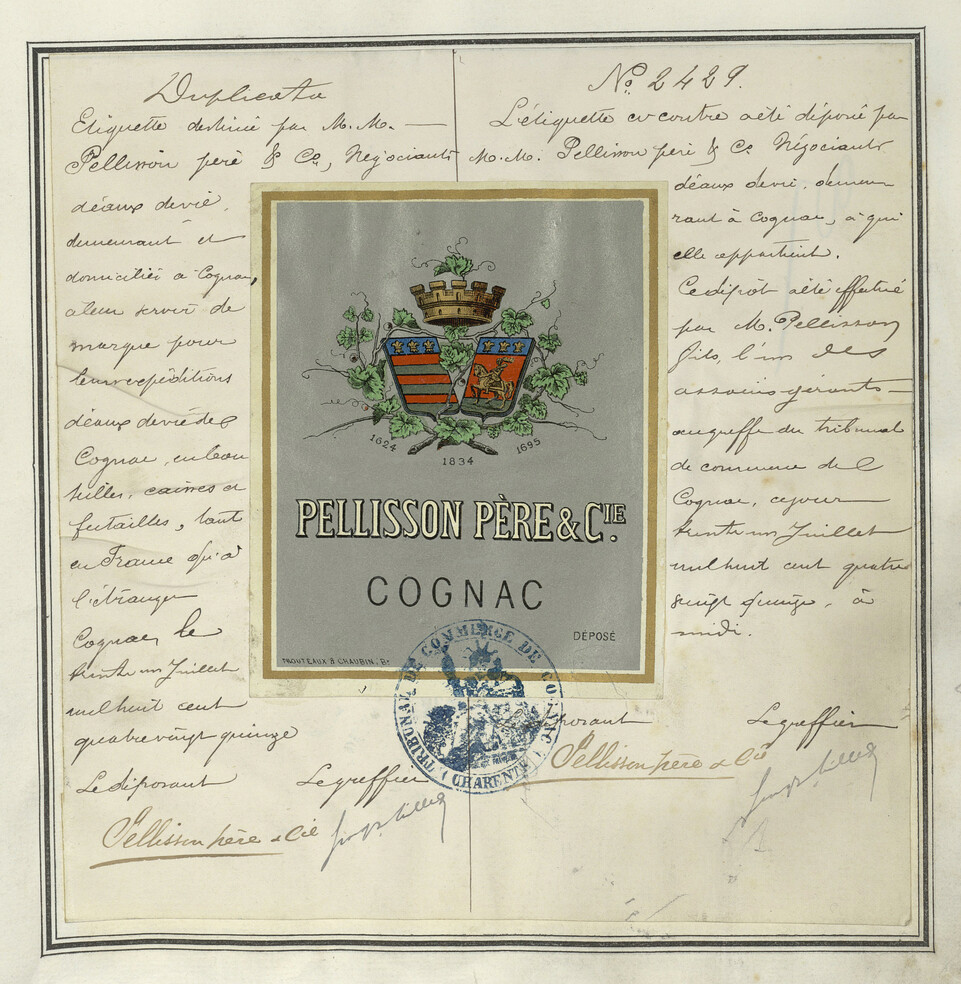 Duplicata
Etiquette destinée par M.M. —
Pellisson père & Co, Négociants
déaux devié,
demeurant et
domiciliés à Cognac,
àleur servir de
marque pour
leurs expéditions
déaux deviédeC
Cognac, en bou
teilles, caisses et
futailles, tant
en France qu'à
l'étranger
Cognac, le
trente un Juillet
mil huit cent
quatre vingt quinze
Le déposant Le greffier
Pellisson père & Cie
No. 2429.
L'étiquette ci contre a été déposé par
M.M. Pellisson père & Co Négociants
déaux devie, demeu-
rant à Cognac, à qui
elle appartient.
Ce dépôt a été effectué
par M. Pellisson
fils, l'un des
associés gérants —
au greffe du tribunal
de commerce de
Cognac, ce jour
trente un Juillet
mil huit cent quatre
vingt quinze, à
midi.
déposant Le greffier
Pellisson père & Cie
1624 1834 1695
PELLISSON PÈRE & CIE.
COGNAC
DÉPOSÉ
TROUTEAUX & CHAUBIN. Bx
TRIBUNAL DE COMMERCE DE COGNAC
(CHARENTE)